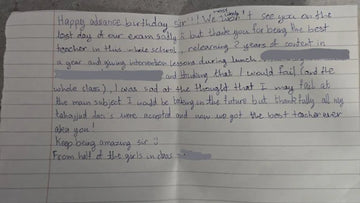 Happy advance birthday sir!!! We won't see you on the
last day of our exam sadly :( but thank you for being the best
teacher in this whole school, relearning 2 years of content in
a year and giving intervention lessons during lunch
and thinking that I would fail (and the
whole class), I was sad at the thought that I may fail at
the main subject I would be taking in the future but thankfully all my
tahajjud dua's were accepted and now we got the best teacher ever
aka you!
Keep being amazing sir :)
From half of the girls in class